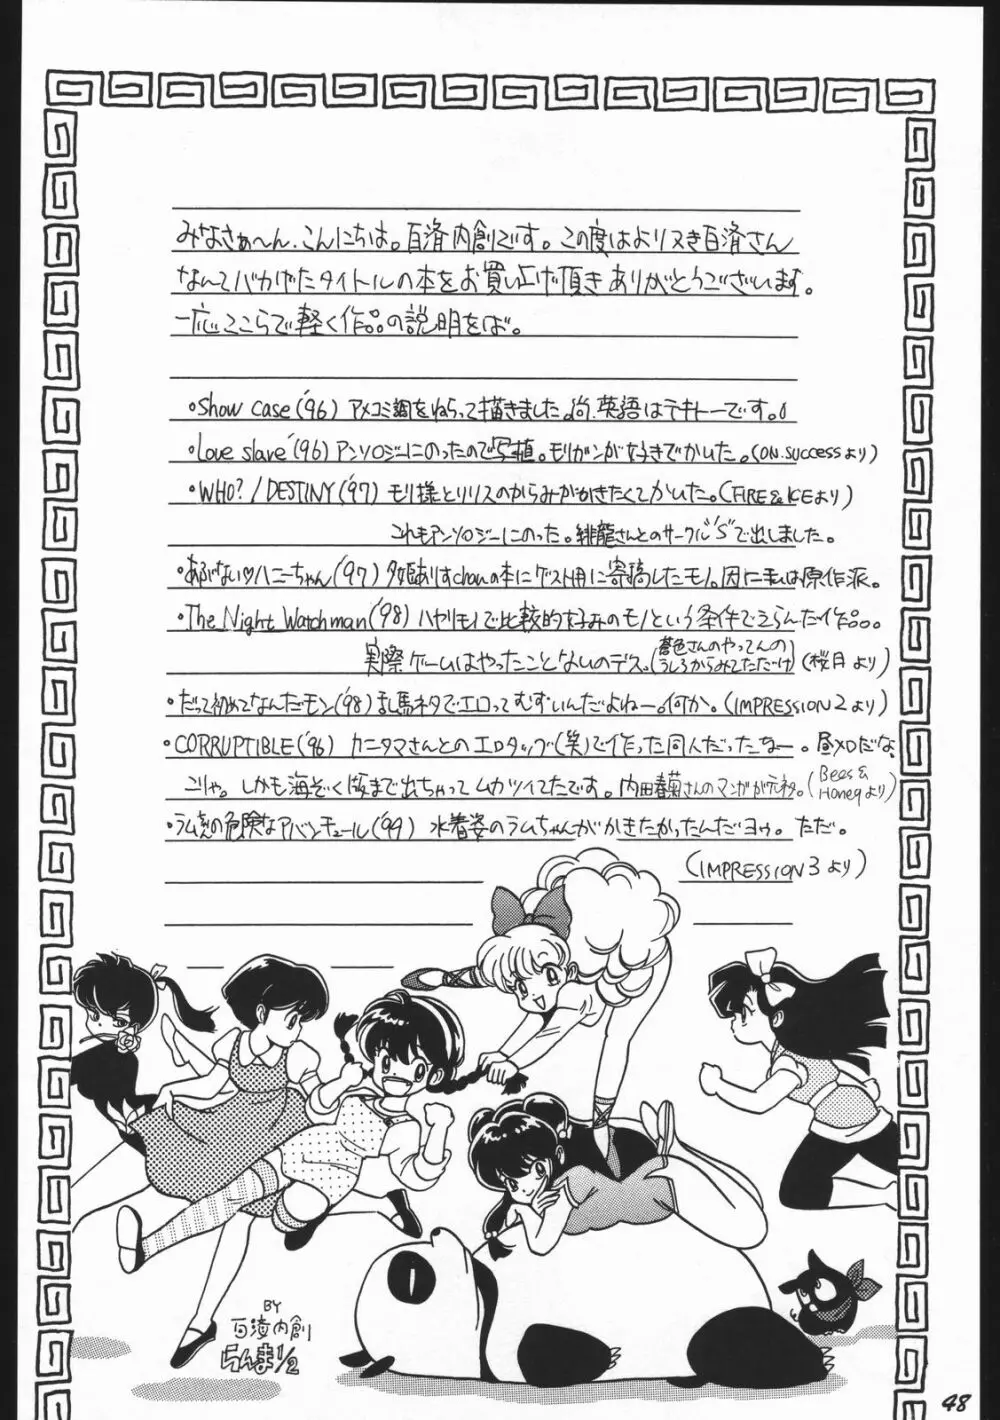 みなさぁ〜ん、こんにちは。百済内創です。この度はよりヌき百済さん
なんてバカげたタイトルの本をお買い上げ頂きありがとうございます。
一応ここらで軽く作品の説明をば。
・Show case('96) アメコミ調をねらって描きました。尚、英語はテキトーです。
・Love slave('96) アンソロジーにのったので写植。モリガンが好きでかいた。(ON.SUCCESSより)
・WHO?/DESTINY('97) モリ様とリリスのからみがかきたくてかいた。(FIRE&ICEより)
これもアンソロジーにのった。緋龍さんとのサークル"S"で出しました。
・あぶない♡ハニーちゃん('97) 夕姫ありすchanの本にゲスト用に寄稿したモノ。因に私は原作派。
・The Night Watchman('98) ハヤリモノで比較的好みのモノという条件でえらんだ作品。
実際ゲームはやったことないのデス。(蒼色さんのやってんのうしろからみてただけ)(桜月より)
・だって初めてなんだモン('98) 乱馬ネタでエロってむずいんだよねー。何か。(IMPRESSION2より)
・CORRUPTIBLE('96) カニタマさんとのエロタッグ(笑)で作った同人だったなー。昼メロだな、
こりゃ。しかも海ぞく版まで出ちゃってムカツイてたです。内田春菊さんのマンガが元ネタ。(Bees&Honeyより)
・ラムちゃんの危険なアバンチュール('99) 水着姿のラムちゃんがかきたかったんだヨゥ。ただ。
(IMPRESSION3より)
BY
百済内創
らんま1/2
48